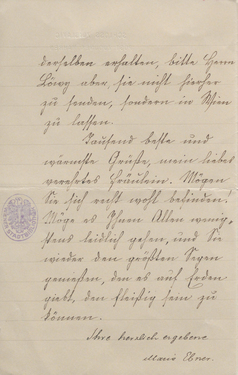 derselben erhalten, bitte Herrn
Löwy aber sie nicht hierher
zu senden, sondern in Wien
zu lassen.
Tausend beste und
wärmste Grüße, mein liebes
verehrtes Fräulein. Mögen
Sie sich recht wohl befinden!
Möge es Ihnen Allen wenig-
stens leidlich gehen, und Sie
wieder den größten Segen
genießen, den es auf Erden
giebt, den fleißig sein zu
können.
Ihre herzlich ergebene
Marie Ebner.